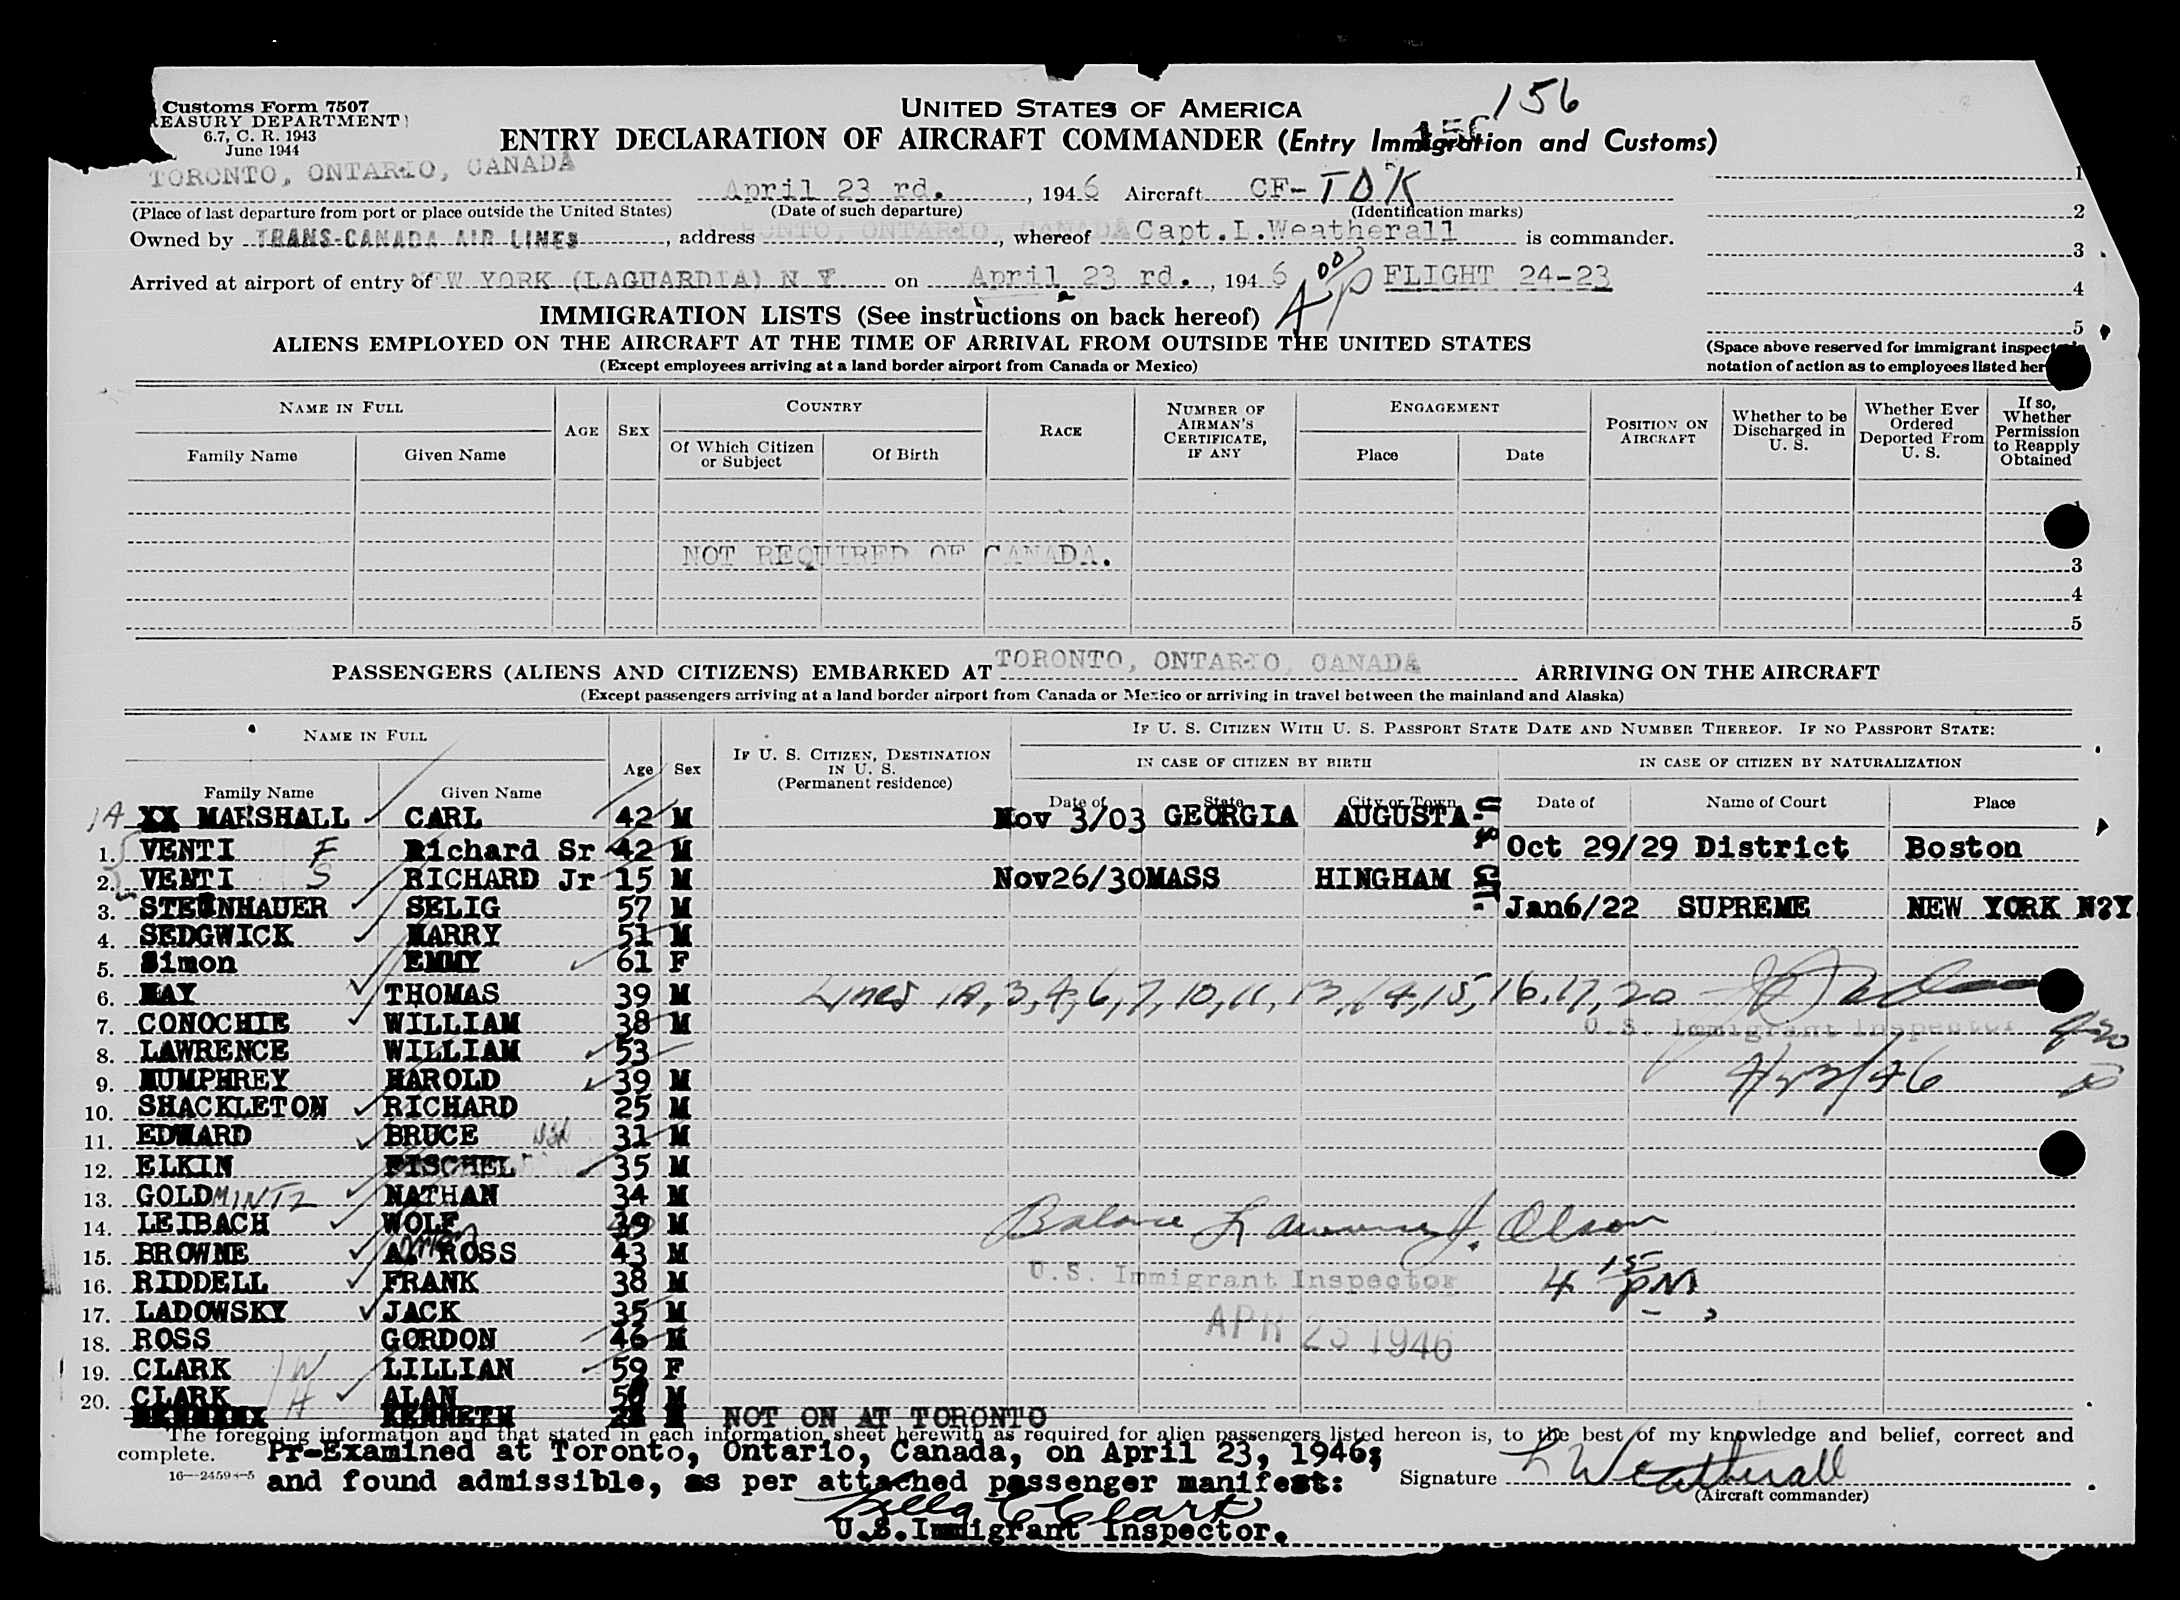 156
Customs Form 7507
EASURY DEPARTMENT
6.7, C. R. 1943
June 1944
UNITED STATES OF AMERICA
ENTRY DECLARATION OF AIRCRAFT COMMANDER (Entry Immigration and Customs)
TORONTO, ONTARIO, CANADA April 23 rd. , 1946 Aircraft CF-TDK
(Place of last departure from port or place outside the United States) (Date of such departure) (Identification marks)
Owned by TRANS-CANADA AIR LINES , address TORONTO, ONTARIO, CANADA , whereof Capt.L.Weatherall is commander.
Arrived at airport of entry of NEW YORK (LAGUARDIA) N Y on April 23 rd. , 1946 4 00 P FLIGHT 24-23
1
2
3
4
5
(Space above reserved for immigrant inspector's
notation of action as to employees listed her
IMMIGRATION LISTS (See instructions on back hereof)
ALIENS EMPLOYED ON THE AIRCRAFT AT THE TIME OF ARRIVAL FROM OUTSIDE THE UNITED STATES
(Except employees arriving at a land border airport from Canada or Mexico)
NAME IN FULL AGE SEX COUNTRY RACE NUMBER OF AIRMAN'S CERTIFICATE, IF ANY ENGAGEMENT POSITION ON AIRCRAFT Whether to be Discharged in U. S. Whether Ever Ordered Deported From U. S. If so, Whether Permission to Reapply Obtained
Family Name Given Name Of Which Citizen or Subject Of Birth Place Date
1
NOT REQUIRED OF CANADA.
3
4
5
PASSENGERS (ALIENS AND CITIZENS) EMBARKED AT TORONTO, ONTARIO, CANADA ARRIVING ON THE AIRCRAFT
(Except passengers arriving at a land border airport from Canada or Mexico or arriving in travel between the mainland and Alaska)
NAME IN FULL Age Sex IF U. S. CITIZEN, DESTINATION IN U. S. (Permanent residence) IF U. S. CITIZEN WITH U. S. PASSPORT STATE DATE AND NUMBER THEREOF. IF NO PASSPORT STATE:
IN CASE OF CITIZEN BY BIRTH IN CASE OF CITIZEN BY NATURALIZATION
Family Name Given Name Date of State City or Town Date of Name of Court Place
1A XX MARSHALL CARL 42 M Nov 3/03 GEORGIA AUGUSTA
US Cit.
1. VENTI F Richard Sr 42 M Oct 29/29 District Boston
2. VENTI S RICHARD Jr 15 M Nov26/30 MASS HINGHAM
3. STEUNHAUER SELIG 57 M Jan6/22 SUPREME NEW YORK N?Y
4. SEDGWICK HARRY 51 M
5. Simon EMMY 61 F
6. HAY THOMAS 39 M Lines 1A, 3, 4, 6, 7, 10, 11, 13, 14, 15, 16, 17, 20
7. CONOCHIE WILLIAM 38 M U.S. Immigrant Inspector
8. LAWRENCE WILLIAM 53 4/23/46
9. HUMPHREY HAROLD 39 M
10. SHACKLETON RICHARD 25 M
11. EDWARD BRUCE 31 M
12. ELKIN FISCHEL 35 M
13. GOLDMINTZ NATHAN 34 M
14. LEIBACH WOLF 39 M Balance Lawrence J. Olson
15. BROWNE A. ROSS 43 M
16. RIDDELL FRANK 38 M U.S. Immigrant Inspector 4 15 PM
17. LADOWSKY JACK 35 M
18. ROSS GORDON 46 M APR 23 1946
19. CLARK W LILLIAN 59 F
20. CLARK H ALAN M
KENNETH NOT ON AT TORONTO
The foregoing information and that stated in each information sheet herewith as required for alien passengers listed hereon is, to the best of my knowledge and belief, correct and
complete. Pr-Examined at Toronto, Ontario, Canada, on April 23, 1946;
and found admissible, as per attached passenger manifest: Signature L Weatherall
(Aircraft commander)
Clark
U.S.Immigrant Inspector.